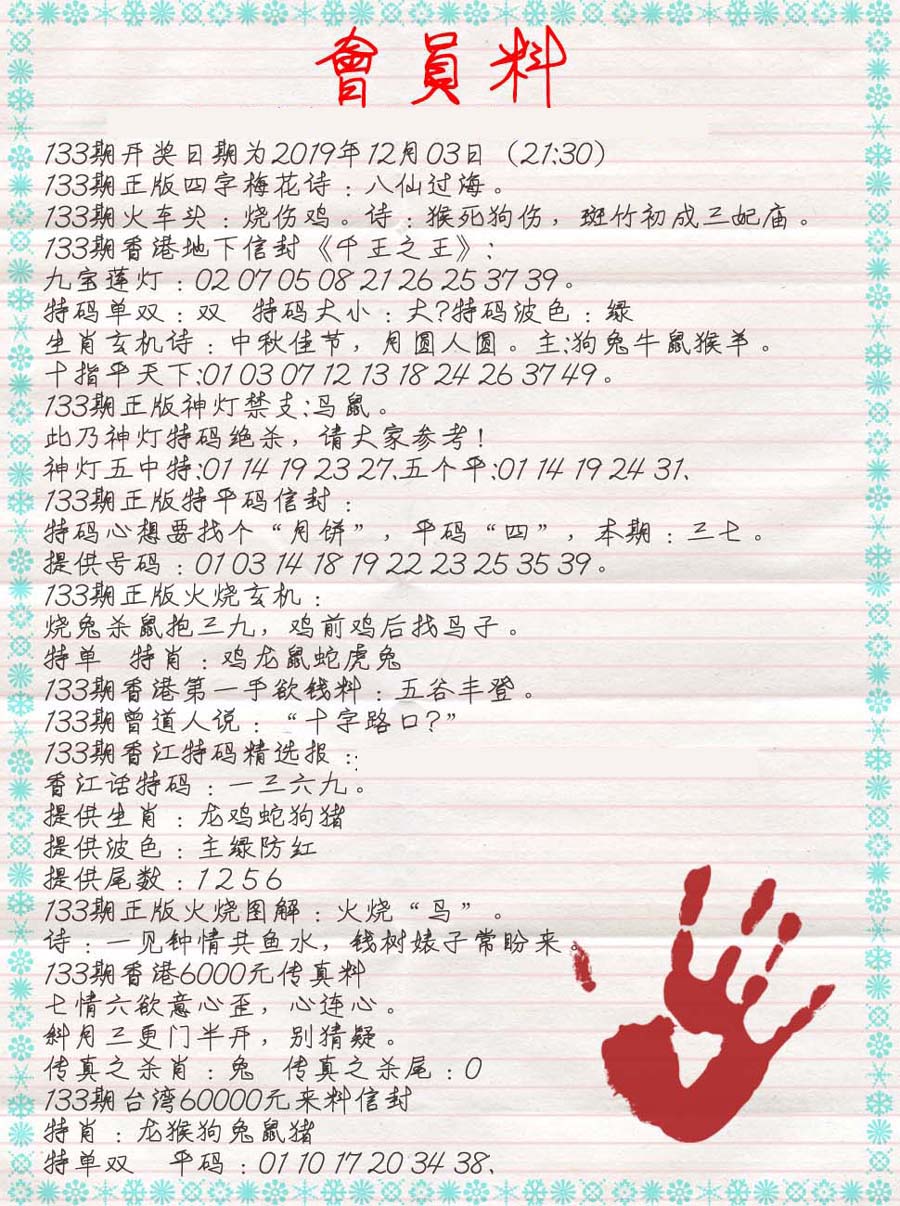 會員料
133期开奖日期为2019年12月03日（21:30）
133期正版四字梅花诗：八仙过海。
133期火车头：烧伤鸡。诗：猴死狗伤，斑竹初成三妃庙。
133期香港地下信封《千王之王》:
九宝莲灯：02 07 05 08 21 26 25 37 39。
特码单双：双 特码大小：大?特码波色：绿
生肖玄机诗：中秋佳节，月圆人圆。主:狗兔牛鼠猴羊。
十指平天下:01 03 07 12 13 18 24 26 37 49。
133期正版神灯禁支:鸟鼠。
此乃神灯特码绝杀，请大家参考！
神灯五中特:01 14 19 23 27、五个平:01 14 19 24 31、
133期正版特平码信封：
特码心想要找个“月饼”，平码“四”，本期：三七。
提供号码：01 03 14 18 19 22 23 25 35 39。
133期正版火烧玄机：
烧兔杀鼠抱三九，鸡前鸡后找马子。
特单 特肖：鸡龙鼠蛇虎兔
133期香港第一手欲钱料：五谷丰登。
133期曾道人说：“十字路口?”
133期香江特码精选报：
香江话特码：一三六九。
提供生肖：龙鸡蛇狗猪
提供波色：主绿防红
提供尾数：1 2 5 6
133期正版火烧图解：火烧“鸟”。
诗：一见钟情共鱼水，钱树婊子常盼来。
133期香港6000元传真料
七情六欲意心歪，心连心。
斜月三更门半开，别猜疑。
传真之杀肖：兔 传真之杀尾：0
133期台湾60000元来料信封
特肖：龙猴狗兔鼠猪
特单双 平码：01 10 17 20 34 38、